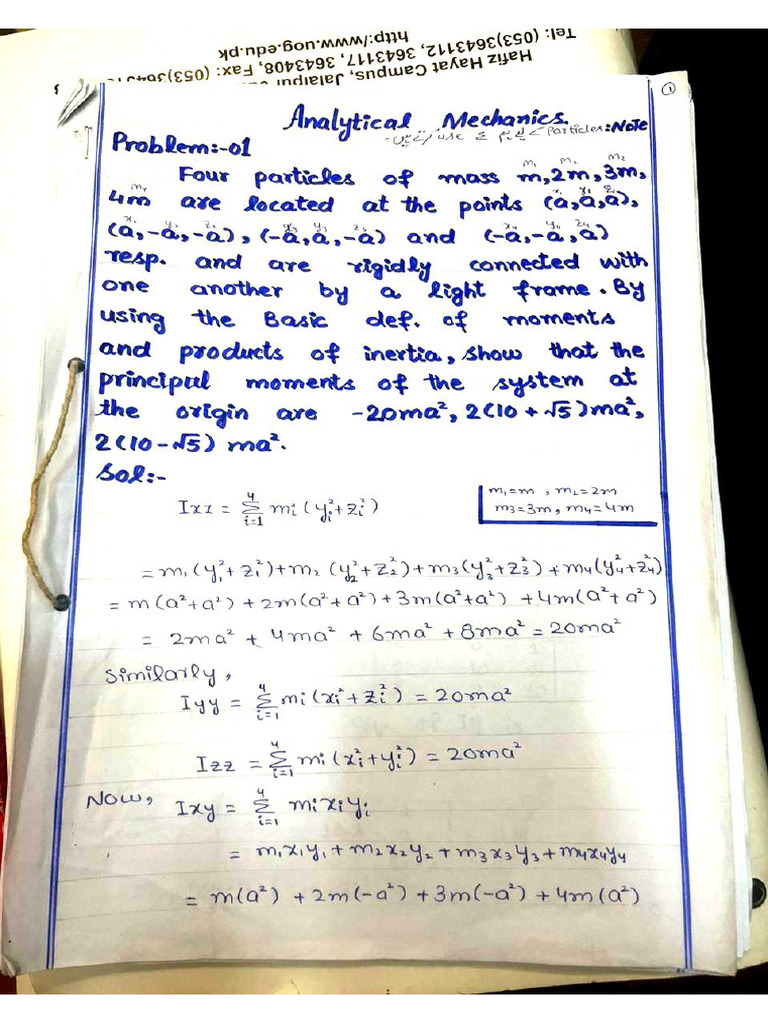 Hafiz Hayat Campus, Jalalpur
Tel: (053)3643112, 3643117, 3643408, Fax: (053)3643
http:/www.uog.edu.pk
①
Analytical Mechanics.
Note: Particles کے لیے ہم use کرتے ہیں۔
Problem:-01
m₁ m₂ m₂
Four particles of mass m,2m,3m,
m₄ x₁ y₁ z₁
4m are located at the points (a,a,a),
x₂ y₂ z₂ x₃ y₃ z₃ x₄ y₄ z₄
(a,-a,-a), (-a,a,-a) and (-a,-a,a)
resp. and are rigidly connected with
one another by a light frame. By
using the Basic def. of moments
and products of inertia, show that the
principal moments of the system at
the origin are -20ma², 2(10+√5)ma²,
2(10-√5) ma².
Sol:-
Ixx = Σ⁴ᵢ₌₁ mi (yi²+zi²)
m₁=m , m₂=2m
m3=3m, m₄=4m
= m₁(y₁²+z₁²)+m₂ (y₂²+z₂²)+m₃(y₃²+z₃²)+m₄(y₄²+z₄²)
= m(a²+a²) + 2m(a²+a²)+3m(a²+a²) +4m(a²+a²)
= 2ma² + 4ma² + 6ma² + 8ma² = 20ma²
Similarly,
Iyy = Σ⁴ᵢ₌₁ mi(xi²+zi²) = 20ma²
Izz = Σ⁴ᵢ₌₁ mi(xi²+yi²) = 20ma²
Now, Ixy = Σ⁴ᵢ₌₁ mixiyi
= m₁x₁y₁+m₂x₂y₂+m₃x₃y₃+m₄x₄y₄
= m(a²) +2m(-a²)+3m(-a²)+4m(a²)